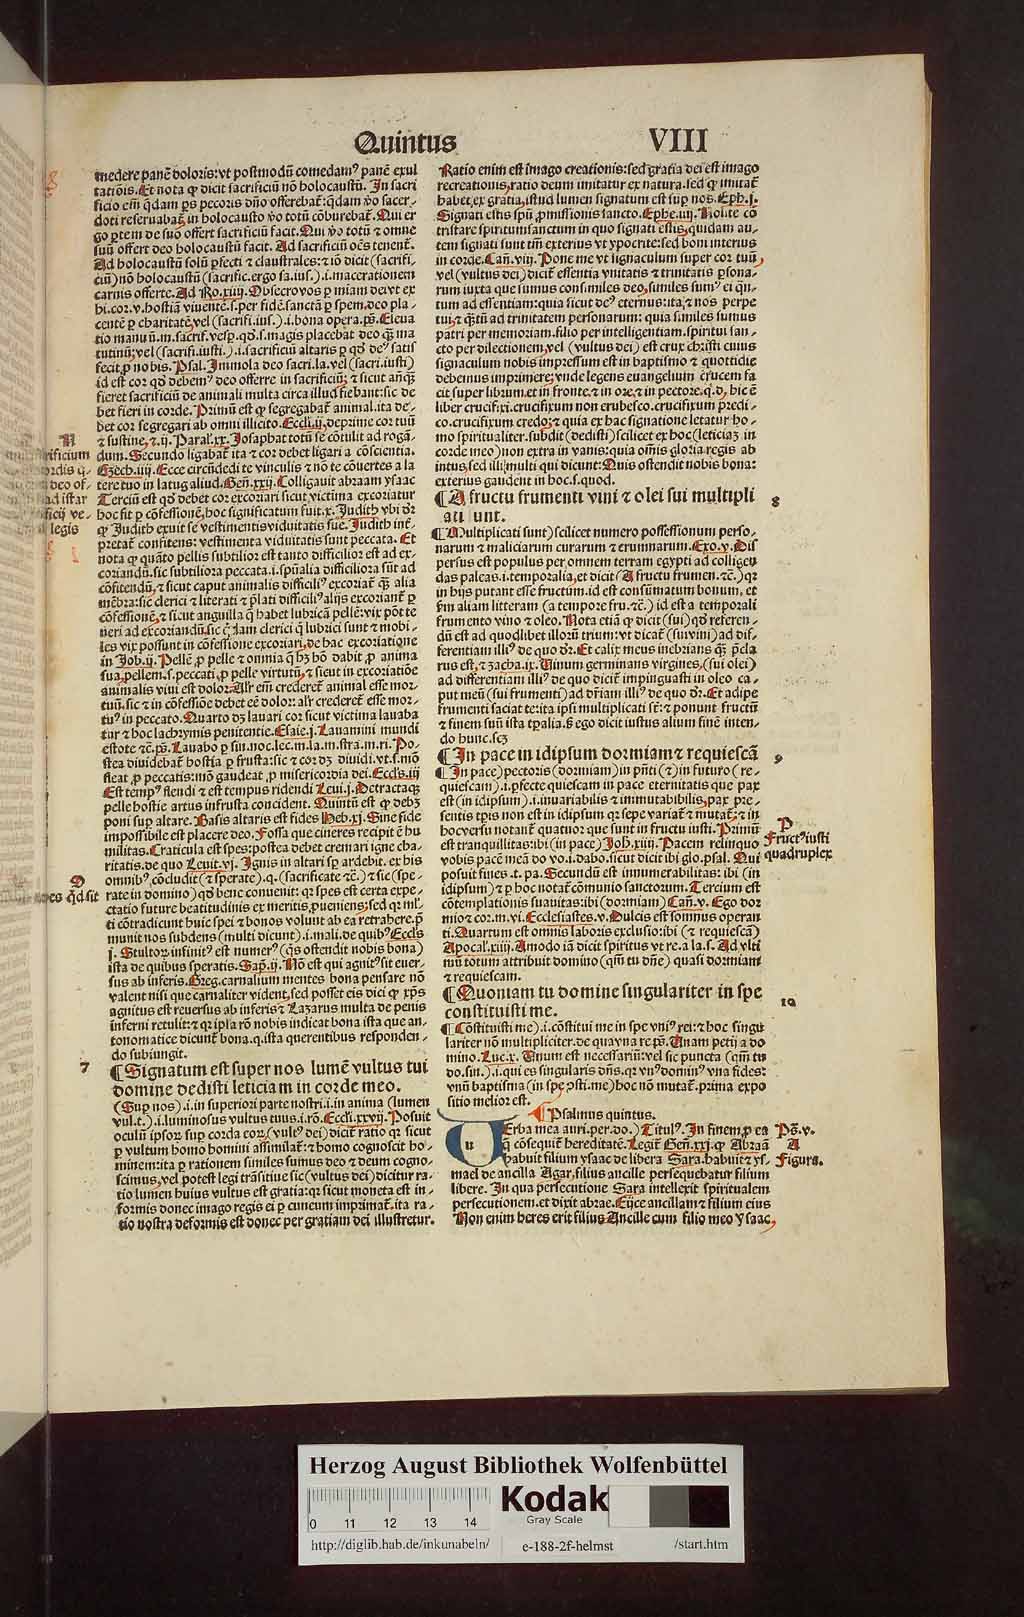 Quintus
VIII
medere panē doloris: vt postmodū comedamꝰ panē exul
tatiōis. Et nota ꝙ dicit sacrificiū nō holocaustū. In sacri
ficio em̄ q̄dam ps pecoris dn̄o offerebat̄: q̄dam v̄o sacer-
doti reseruabat̄, in holocausto v̄o totū cōburebat̄. Qui er
go ptem de suo offert sacrificiū facit. Qui v̄o totū ⁊ omne
suū offert deo holocaustū facit. Ad sacrificiū oēs tenent̄.
Ad holocaustū solū pfecti ⁊ claustrales: ⁊ iō dicit (sacrifi-
ciū) nō holocaustū (sacrific. ergo sa. ius.) .i. macerationem
carnis offerte. Ad Ro. xiii. Obsecro vos p miam dei vt ex
hi. cor. v. hostiā viuentē. s. per fidē. sanctā p spem. deo pla-
centē p charitatē, vel (sacrifi. ius.) .i. bona opera. ps̄. Eleua
tio manuū. m. sacrif. vesp. qd̄. s. magis placebat deo q̄ꝫ ma
tutinū; vel (sacrifi. iusti.) .i. sacrificiū altaris p qd̄ deꝰ satis
fecit p nobis. Psal. Immola deo sacri. la. vel (sacri. iusti)
id est cor qd̄ debemꝰ deo offerre in sacrificiū; ⁊ sicut an̄q̄ꝫ
fieret sacrificiū de animali multa circa illud fiebant: sic de
bet fieri in corde. Primū est ꝙ segregabat̄ animal. ita de-
bet cor segregari ab omni illicito. Eccli. ij. deprime cor tuū
⁊ sustine, ⁊ .ij. Paral. xx. Josaphat totū se cōtulit ad rogā-
dum. Secundo ligabat̄ ita ⁊ cor debet ligari a cōscientia.
Ezech. iiij. Ecce circūdedi te vinculis ⁊ nō te cōuertes a la
tere tuo in latus aliud. Gen̄. xxij. Colligauit abraam ysaac
Terciū est qd̄ debet cor excoriari sicut victima excoriatur
hoc fit p cōfessionē, hoc significatum fuit. x. Judith vbi dr̄
ꝙ Judith exuit se vestimentis viduitatis sue. Judith int̄
pretat̄ confitens: vestimenta viduitatis sunt peccata. Et
nota ꝙ quāto pellis subtilior est tanto difficilior est ad ex-
coriandū. sic subtiliora peccata .i. spūalia difficiliora sūt ad
cōfitendū, ⁊ sicut caput animalis difficiliꝰ excoriat̄ q̄ꝫ alia
mēbra: sic clerici ⁊ literati ⁊ p̄lati difficiliꝰ alijs excoriant̄ p
cōfessionē, ⁊ sicut anguilla q̄ habet lubricā pellē: vix pōt te
neri ad excoriandū. sic q̄dam clerici q̄ lubrici sunt ⁊ mobi-
les vix possunt in cōfessione excoriari, de hac excoriatione
in Job. ij. Pellē p pelle ⁊ omnia q̄ hꝫ hō dabit p anima
sua, pellem. s. peccati, p pelle virtutū, ⁊ sicut in excoriatiōe
animalis viui est dolor. Alr̄ em̄ crederet̄ animal esse mor
tuū. sic ⁊ in cōfessiōe debet eē dolor: alr̄ crederet̄ esse mor-
tuꝰ in peccato. Quarto dꝫ lauari cor sicut victima lauaba
tur ⁊ hoc lachrymis penitentie. Esaie. j. Lauamini mundi
estote ⁊c̄. ps̄. Lauabo p sin. noc. lec. m. la. m. stra. m. ri. Po-
stea diuidebat̄ hostia p frusta: sic ⁊ cor dꝫ diuidi. vt. s. mō
fleat p peccatis: mō gaudeat p misericordia dei. Eccls̄. iij
Est tempꝰ flendi ⁊ est tempus ridendi Leui. j. Detractaqꝫ
pelle hostie artus in frusta concident. Quintū est ꝙ debꝫ
poni sup altare. Basis altaris est fides Heb. xj. Sine fide
impossibile est placere deo. Fossa que cineres recipit ē hu
militas. Craticula est spes: postea debet cremari igne cha-
ritatis. de quo Leuit. vj. Ignis in altari sp ardebit. ex his
omnibꝰ cōcludit (⁊ sperate) .q. (sacrificate ⁊c̄.) ⁊ sic (spe-
rate in domino) qd̄ bene conuenit: qꝛ spes est certa expe-
ctatio future beatitudinis ex meritis pueniens; sed qꝛ ml̄-
ti cōtradicunt huic spei ⁊ bonos volunt ab ea retrahere. p̄
munit nos subdens (multi dicunt) .i. mali. de quibꝰ Eccls̄
j. Stultoꝝ infinitꝰ est numerꝰ (q̄s ostendit nobis bona)
ista de quibus speratis. Sap. ij. Nō est qui agnitꝰ sit euer-
sus ab inferis. Greg. carnalium mentes bona pensare nō
valent nisi que carnaliter vident, sed posset eis dici ꝙ xp̄s
agnitus est reuersus ab inferis ⁊ Lazarus multa de penis
inferni retulit: ⁊ qꝛ ipla rō nobis indicat bona ista que an-
tonomatice dicunt̄ bona. q. ista querentibus responden-
do subiungit.
7
¶ Signatum est super nos lumē vultus tui
domine dedisti leticiam in corde meo.
(Sup nos) .i. in superiori parte nostri .i. in anima (lumen
vul. t.) .i. luminosus vultus tuus .i. rō. Eccli. xxvij. Posuit
oculū ipsoꝝ sup corda eoꝝ, (vultꝰ dei) dicit̄ ratio qꝛ sicut
p vultum homo homini assimilat̄: ⁊ homo cognoscit ho-
minem: ita p rationem similes sumus deo ⁊ deum cogno-
scimus, vel potest legi trāsitiue sic (vultus dei) dicitur ra-
tio lumen huius vultus est gratia: qꝛ sicut moneta est in-
formis donec imago regis ei p cuneum imprimat̄. ita ra-
tio nostra deformis est donec per gratiam dei illustretur.
Ratio enim est imago creationis: sed gratia dei est imago
recreationis, ratio deum imitatur ex natura. sed ꝙ imitat̄
habet ex gratia, istud lumen signatum est sup nos. Eph. j.
Signati estis spū pmissionis sancto. Ephe. iiij. Nolite cō
tristare spiritum sanctum in quo signati estis, quidam au-
tem signati sunt tm̄ exterius vt ypocrite: sed boni interius
in corde. Can̄. viij. Pone me vt signaculum super cor tuū,
vel (vultus dei) dicit̄ essentia vnitatis ⁊ trinitatis psona-
rum iuxta que sumus cons. miles deo, similes sumꝰ ei q̄n-
tum ad essentiam: quia sicut deꝰ eternus: ita ⁊ nos perpe
tui; ⁊ q̄ꝫtū ad trinitatem personarum: quia similes sumus
patri per memoriam. filio per intelligentiam. spiritui san-
cto per dilectionem, vel (vultus dei) est crux christi cuius
signaculum nobis impressum est in baptismo ⁊ quottidie
debemus imprimere; vnde legens euangelium crucem fa
cit super librum. et in fronte, ⁊ in ore, ⁊ in pectore. q. d, hic ē
liber crucifixi. crucifixum non erubesco. crucifixum predi-
co. crucifixum credo; ⁊ quia ex hac signatione letatur ho-
mo spiritualiter. subdit (dedisti) scilicet ex hoc (leticiaꝫ in
corde meo) non extra in vanis: quia omīs gloria regis ab
intus, sed illi multi qui dicunt: Quis ostendit nobis bona:
exterius gaudent in hoc. s. quod.
¶ A fructu frumenti vini ⁊ olei sui multipli
cati sunt.
8
¶ Multiplicati sunt) scilicet numero possessionum perso-
narum ⁊ maliciarum curarum ⁊ erumnarum. Exo. v. Dis
persus est populus per omnem terram egypti ad colligen
das paleas .i. temporalia, et dicit (A fructu frumen. ⁊c̄.) qꝛ
in hijs putant esse fructum. id est consūmatum bonum, et
fm̄ aliam litteram (a tempore fru. ⁊c̄.) id est a temporali
frumento vino ⁊ oleo. Nota etiā ꝙ dicit (sui) qd̄ referen-
dū est ad quodlibet illorū trium: vt dicat̄ (sui vini) ad dif-
ferentiam illiꝰ de quo dr̄. Et calix meus inebrians q̄ꝫ p̄cla
rus est, ⁊ zacha. ix. Vinum germinans virgines, (sui olei)
ad differentiam illiꝰ de quo dicit̄ impinguasti in oleo ca-
put meū (sui frumenti) ad dr̄iam illiꝰ de quo dr̄. Et adipe
frumenti saciat te: ita ipsi multiplicati st̄: ⁊ ponunt fructū
⁊ finem suū ista tp̄alia. s̄ ego dicit iustus alium finē inten-
do hunc. scꝫ
¶ In pace in idipsum dormiam ⁊ requiescā
9
¶ In pace) pectoris (dormiam) in pn̄ti (⁊) in futuro (re-
quiescam) .i. pfecte quiescam in pace eternitatis que pax
est (in idipsum) .i. inuariabilis ⁊ immutabibilis, pax pre-
sentis tp̄is non est in idipsum qꝛ sepe variat̄ ⁊ mutat̄; ⁊ in
hoc versu notant̄ quatuor que sunt in fructu iusti. Primū
est tranquillitas: ibi (in pace) Joh̄. xiiij. Pacem relinquo
vobis pacē meā do vo. i. dabo. sicut dicit ibi glo. psal. Qui
posuit fines. t. pa. Secundū est innumerabilitas: ibi (in
idipsum) ⁊ p hoc notat̄ cōmunio sanctorum. Tercium est
cōtemplationis suauitas: ibi (dormiam) Can̄. v. Ego dor
mio ⁊ cor. m. vi. Ecclesiastes. v. Dulcis est somnus operan
ti. Quartum est omnis laboris exclusio: ibi (⁊ requiescā)
Apocal. xiiij. Amodo iā dicit spiritus vt re. a la. s. Ad vlti
mū totum attribuit domino (qm̄ tu dn̄e) quasi dormiam
⁊ requiescam.
¶ Quoniam tu domine singulariter in spe
constituisti me.
10
¶ Cōstituisti me) .i. cōstitui me in spe vniꝰ rei: ⁊ hoc singu
lariter nō multipliciter. de qua vna re ps̄. Vnam petij a do
mino. Luc. x. Vnum est necessariū: vel sic puncta (qm̄ tu
do. sin.) .i. qui es singularis dn̄s. qꝛ vnꝰ dominꝰ vna fides:
vnū baptisma (in spe ↄsti. me) hoc nō mutat̄. prima expo
sitio melior est.
¶ Psalmus quintus.
VErba mea auri. per. do.) Titulꝰ. In finem p ea
q̄ cōsequit̄ hereditatē. Legit̄ Gen̄. xxj. ꝙ Abraā
habuit filium ysaac de libera Sara. habuit ⁊ ys-
mael de ancilla Agar, filius ancille persequebatur filium
libere. In qua persecutione Sara intellexit spiritualem
persecutionem. et dixit abrae. Eijce ancillam ⁊ filium eius
Non enim heres erit filius Ancille cum filio meo ysaac,
ordis q-
deo of-
ad istar
legis
O
Spes q̄d sit
P
Fructꝰ iusti
quadruplex
Ps̄. v.
A
Figura.
Herzog August Bibliothek Wolfenbüttel
0 11 12 13 14
Kodak
Gray Scale
http://diglib.hab.de/inkunabeln/
e-188-2f-helmst
/start.htm